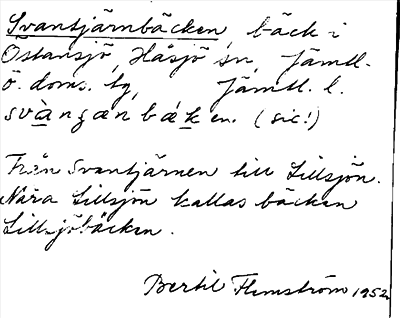 Svantjärnbäcken, bäck i
Östansjö, Håsjö sn, Jämtl.
ö. doms. tg, Jämtl. l.
svàngæn báken. (sic!)
Från Svantjärnen till Lillsjön.
Nära Lillsjön kallas bäcken
Lillsjöbäcken.
Bertil Flemström 1952.